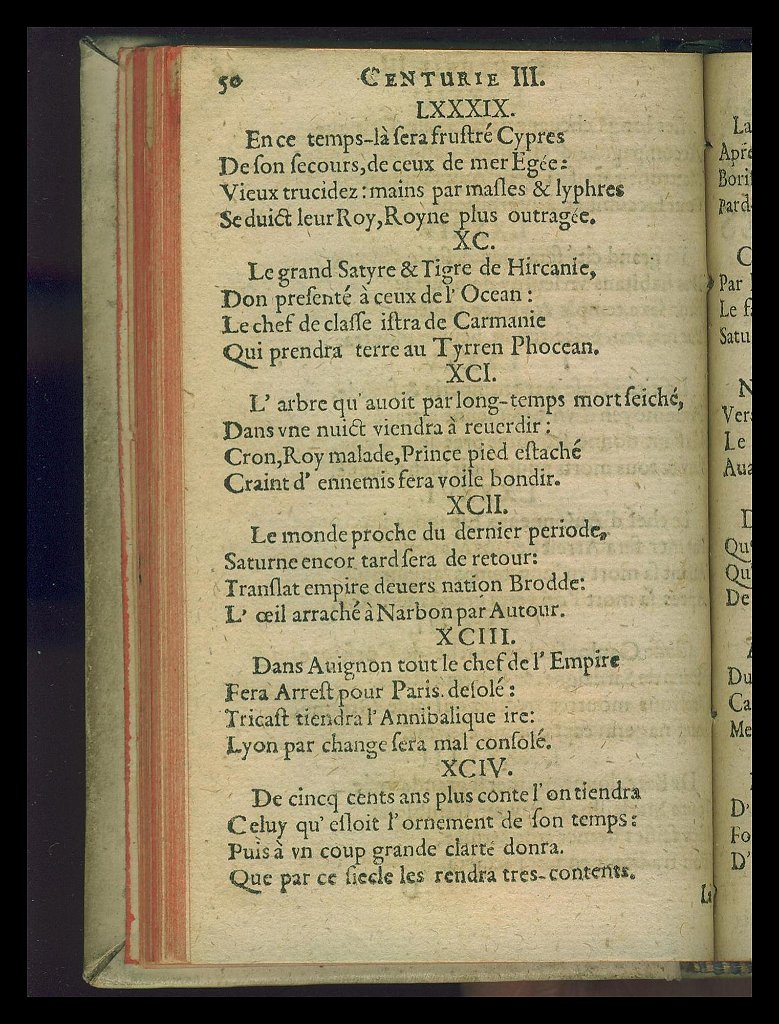 50 CENTURIE III.
LXXXIX.
En ce temps-là ſera fruſtré Cypres
De ſon ſecours, de ceux de mer Egée:
Vieux trucidez: mains par maſles & lyphres
Seduict leur Roy, Royne plus outragée.
XC.
Le grand Satyre & Tigre de Hircanie,
Don preſenté à ceux de l' Ocean:
Le chef de claſſe iſtra de Carmanie
Qui prendra terre au Tyrren Phocean.
XCI.
L' arbre qu' auoit par long-temps mort ſeiché,
Dans vne nuict viendra à reuerdir:
Cron, Roy malade, Prince pied eſtaché
Craint d' ennemis fera voile bondir.
XCII.
Le monde proche du dernier periode,
Saturne encor tard ſera de retour:
Tranſlat empire deuers nation Brodde:
L' œil arraché à Narbon par Autour.
XCIII.
Dans Auignon tout le chef de l' Empire
Fera Arreſt pour Paris. deſolé:
Tricaſt tiendra l' Annibalique ire:
Lyon par change ſera mal conſolé.
XCIV.
De cincq cents ans plus conte l' on tiendra
Celuy qu' eſloit l' ornement de ſon temps:
Puis à vn coup grande clarté donra.
Que par ce ſiecle les rendra tres-contents.
La
Apre
Bori
Pard
C
Par
Le f
Satu
N
Vers
Le
Aua
Qu'
Qu
De
Du
Ca
Me
D'
Fo
D'